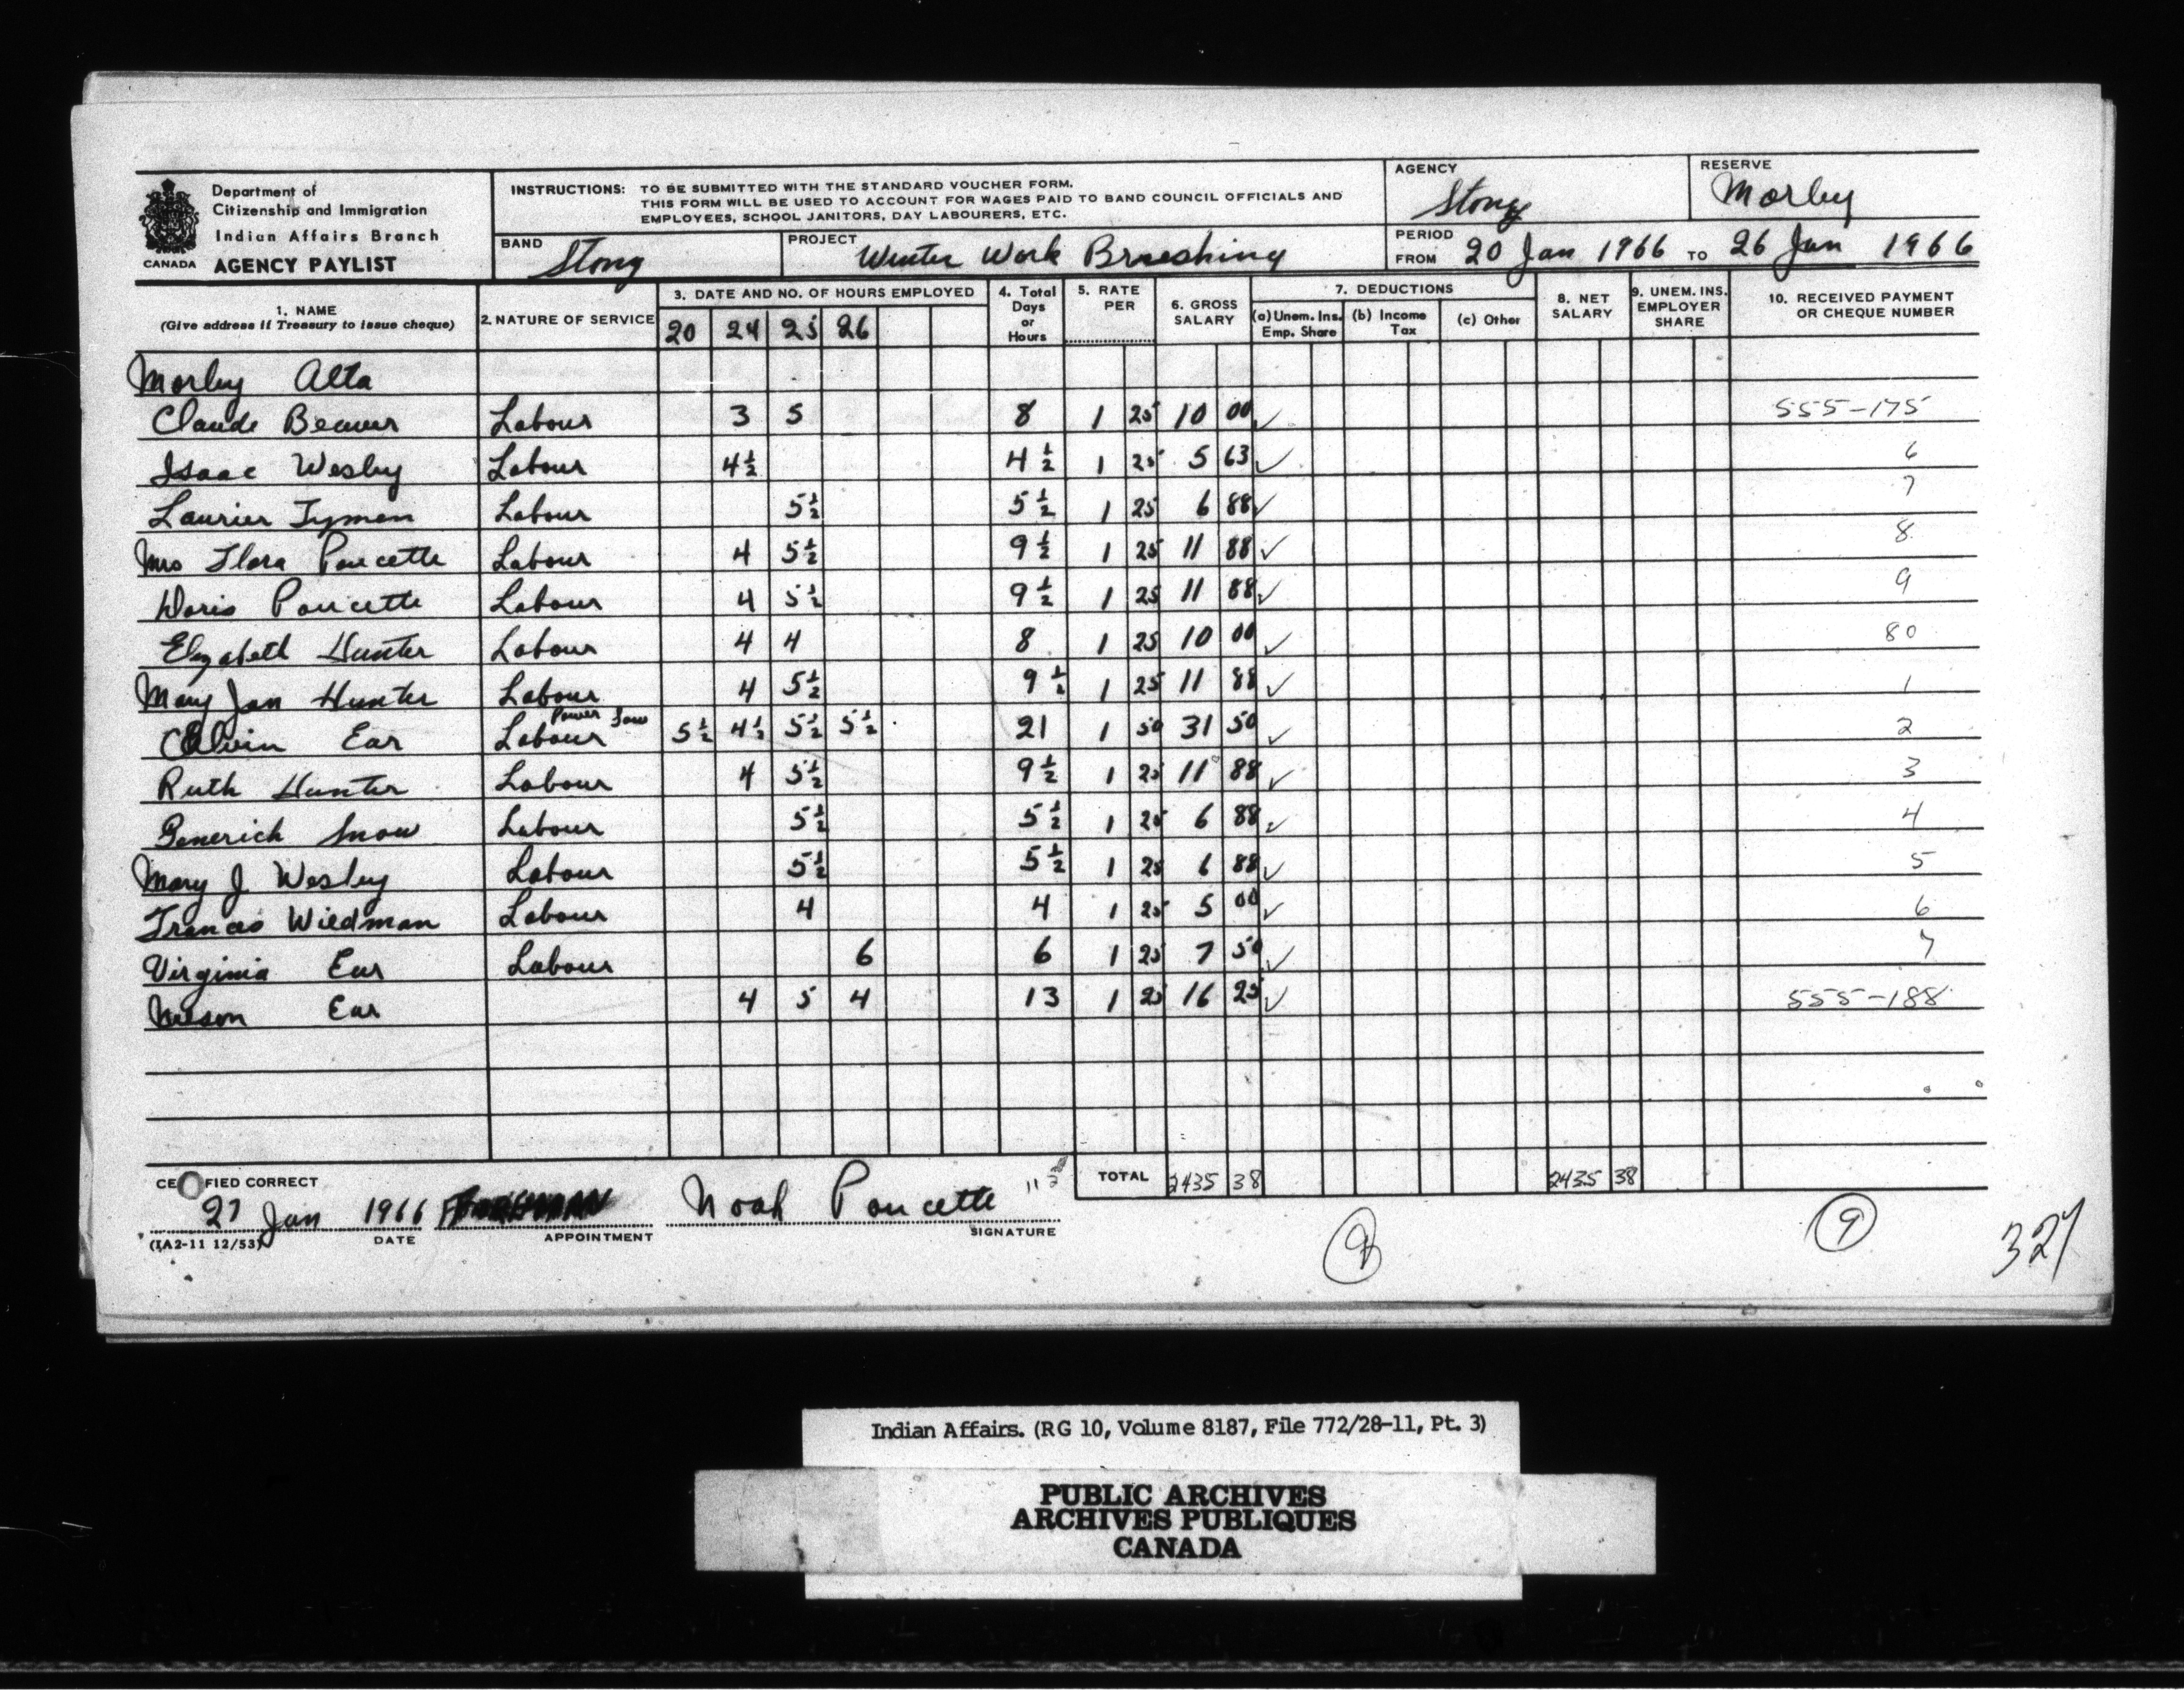 Department of
Citizenship and Immigration
Indian Affairs Branch
CANADA AGENCY PAYLIST
INSTRUCTIONS: TO BE SUBMITTED WITH THE STANDARD VOUCHER FORM.
THIS FORM WILL BE USED TO ACCOUNT FOR WAGES PAID TO BAND COUNCIL OFFICIALS AND
EMPLOYEES, SCHOOL JANITORS, DAY LABOURERS, ETC.
AGENCY Stony
RESERVE Morley
BAND Stony
PROJECT Winter Work Brushing
PERIOD FROM 20 Jan 1966 TO 26 Jan 1966
1. NAME (Give address if Treasury to issue cheque)
2. NATURE OF SERVICE
3. DATE AND NO. OF HOURS EMPLOYED
20 24 25 26
4. Total Days or Hours
5. RATE PER
6. GROSS SALARY
7. DEDUCTIONS
(a) Unem. Ins. Emp. Share
(b) Income Tax
(c) Other
8. NET SALARY
9. UNEM. INS. EMPLOYER SHARE
10. RECEIVED PAYMENT OR CHEQUE NUMBER
Morley Alta
Claude Beaver Labour 3 5 8 1 25 10 00 ✓ 555-175
Isaac Wesley Labour 4½ 4½ 1 25 5 63 ✓ 6
Laurier Tymen Labour 5½ 5½ 1 25 6 88 ✓ 7
Mrs Flora Poucette Labour 4 5½ 9½ 1 25 11 88 ✓ 8
Doris Poucette Labour 4 5½ 9½ 1 25 11 88 ✓ 9
Elizabeth Hunter Labour 4 4 8 1 25 10 00 ✓ 80
Mary Jan Hunter Labour 4 5½ 9½ 1 25 11 88 ✓ 1
Calvin Ear Labour Power Saw 5½ 4½ 5½ 5½ 21 1 50 31 50 ✓ 2
Ruth Hunter Labour 4 5½ 9½ 1 25 11 88 ✓ 3
Snow Labour 5½ 5½ 1 25 6 88 ✓ 4
Mary J Wesley Labour 5½ 5½ 1 25 6 88 ✓ 5
Francis Wildman Labour 4 4 1 25 5 00 ✓ 6
Virginia Ear Labour 6 6 1 25 7 50 ✓ 7
Ear 4 5 4 13 1 25 16 25 ✓ 555-188
TOTAL 2435 38 2435 38
CERTIFIED CORRECT
27 Jan 1966 Noah Poucette
DATE APPOINTMENT SIGNATURE
(IA2-11 12/53)
9
9
327
Indian Affairs. (RG 10, Volume 8187, File 772/28-11, Pt. 3)
PUBLIC ARCHIVES
ARCHIVES PUBLIQUES
CANADA